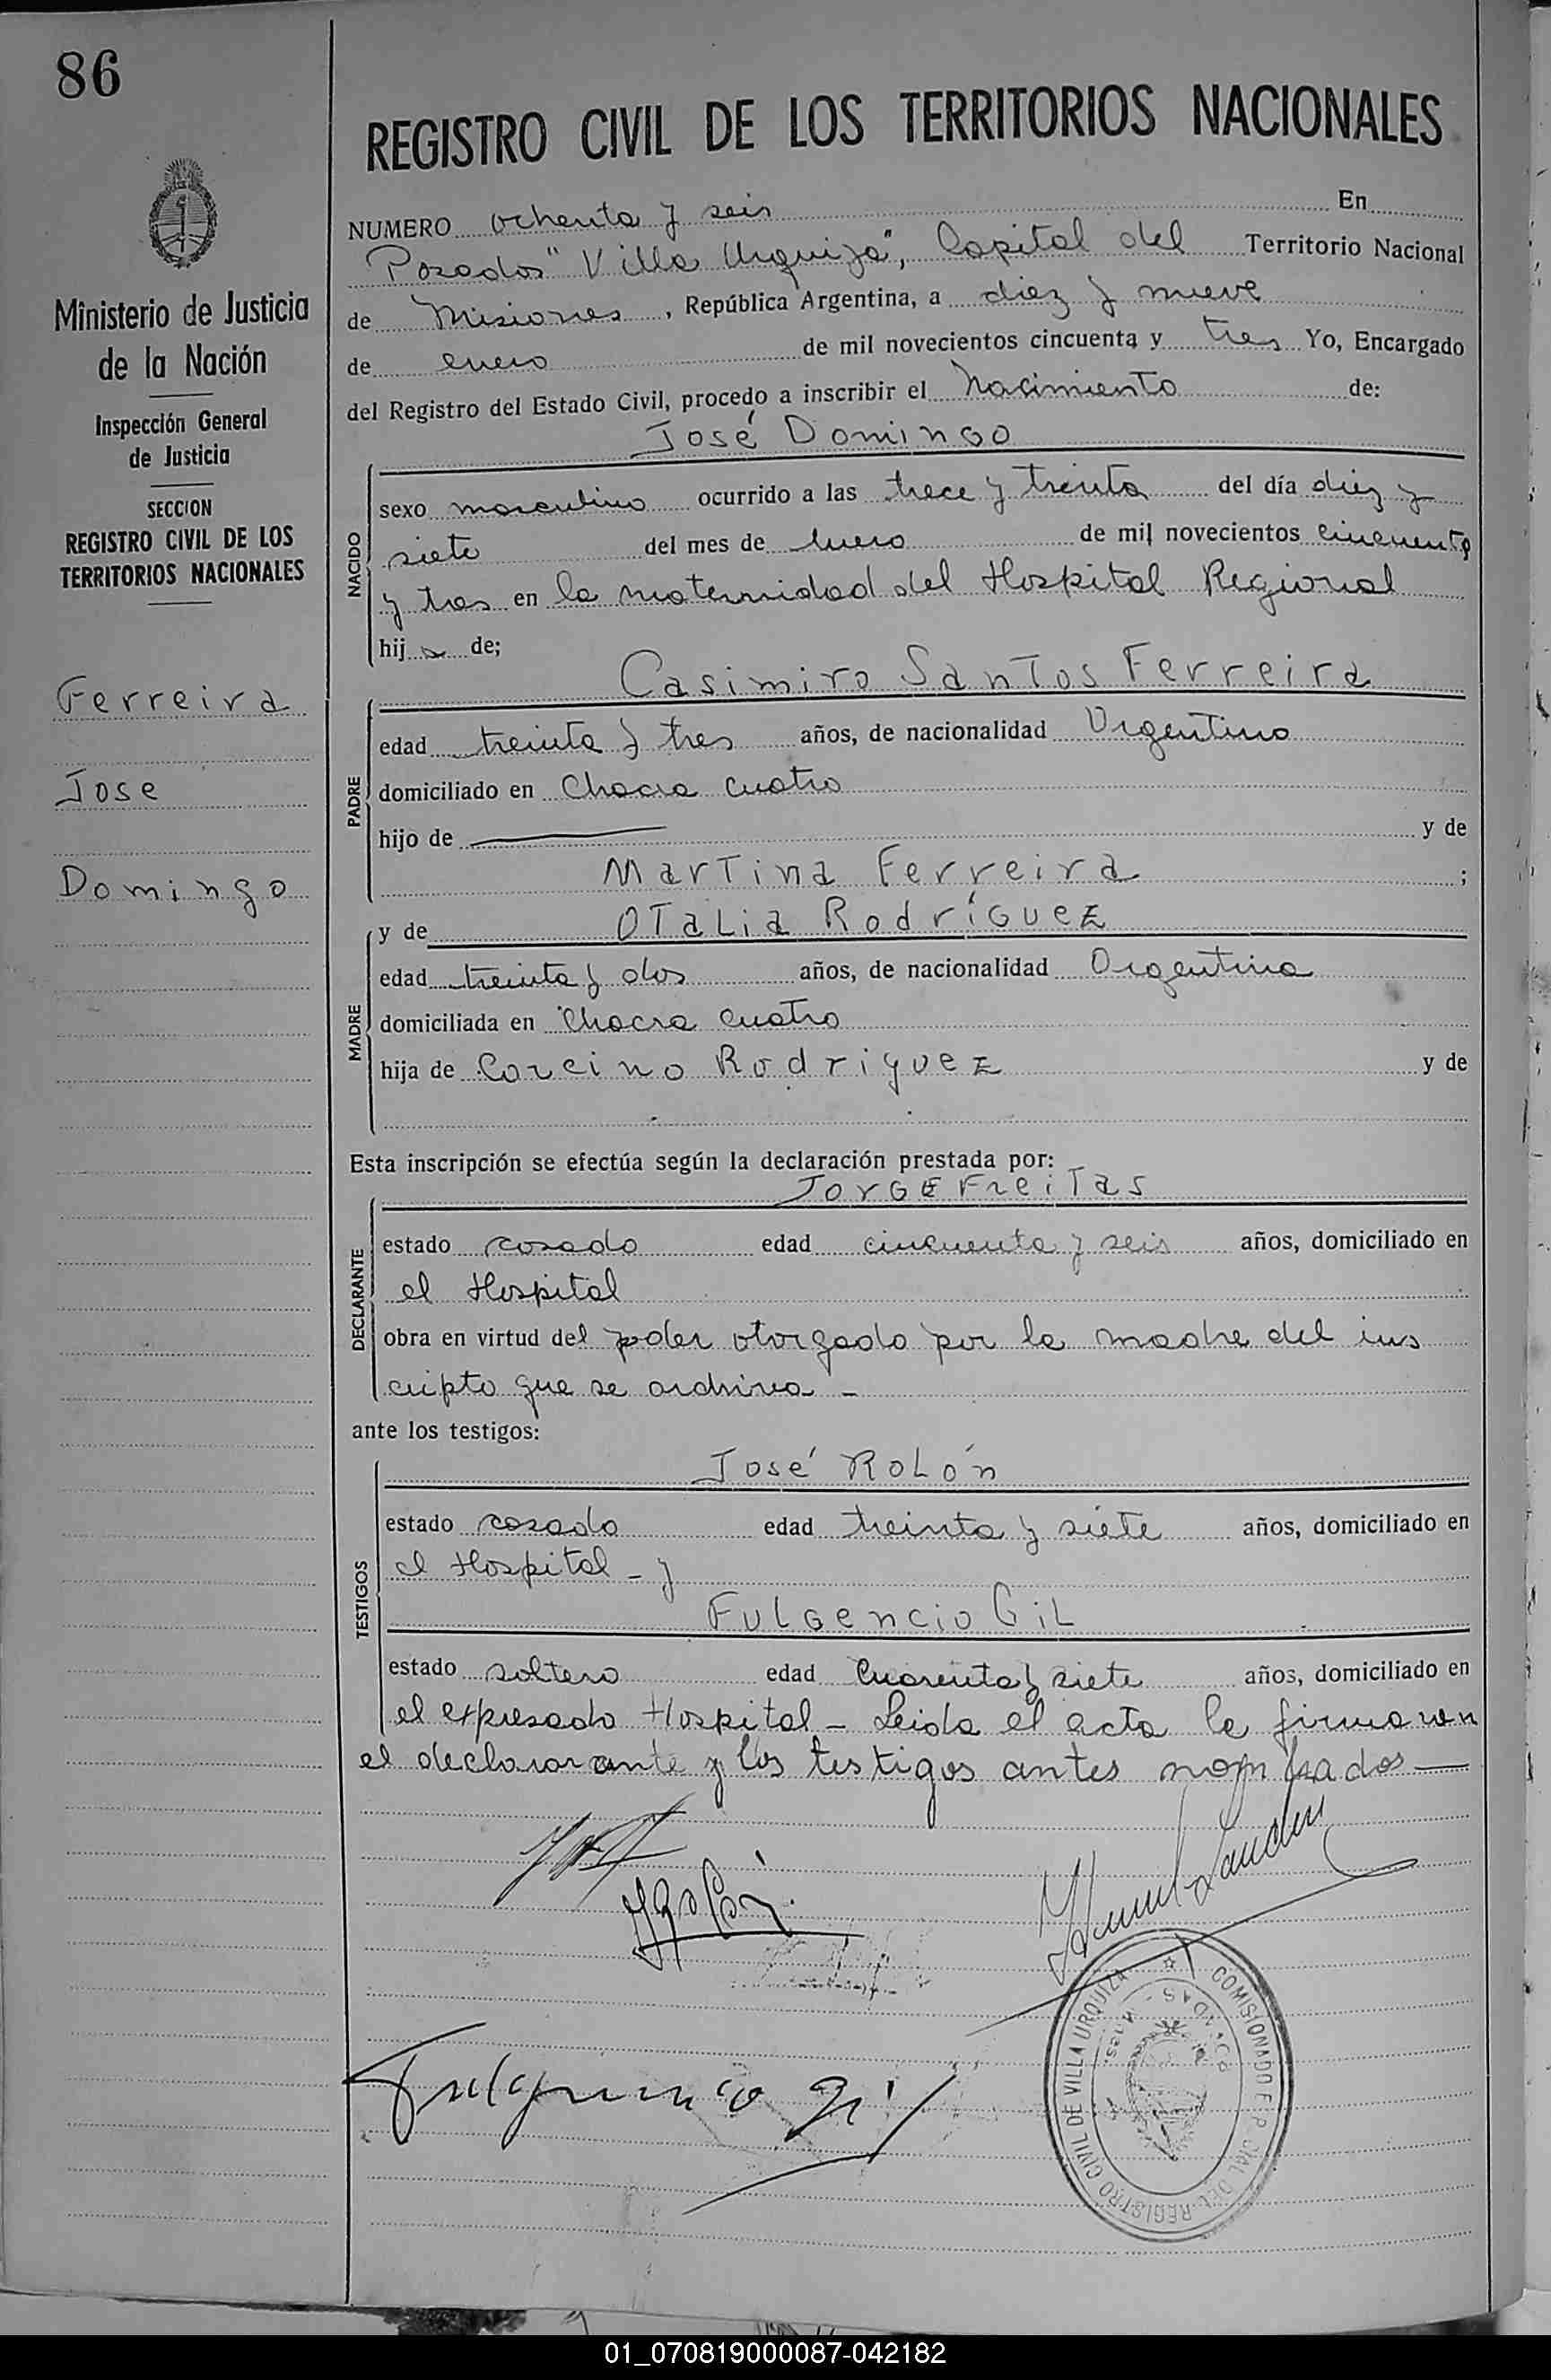 86
REGISTRO CIVIL DE LOS TERRITORIOS NACIONALES
Ministerio de Justicia
de la Nación
Inspección General
de Justicia
SECCION
REGISTRO CIVIL DE LOS
TERRITORIOS NACIONALES
Ferreira
Jose
Domingo
NUMERO ochenta y seis En
Posadas "Villa Urquiza", Capital del Territorio Nacional
de Misiones, República Argentina, a diez y nueve
de enero de mil novecientos cincuenta y tres Yo, Encargado
del Registro del Estado Civil, procedo a inscribir el Nacimiento de:
José Domingo
NACIDO
sexo masculino ocurrido a las trece y treinta del día diez y
siete del mes de Enero de mil novecientos cincuenta
y tres en la maternidad del Hospital Regional
hijo de;
Casimiro Santos Ferreira
PADRE
edad treinta y tres años, de nacionalidad Argentino
domiciliado en Chacra Cuatro
hijo de — y de
Martina Ferreira ;
y de Otalia Rodríguez
MADRE
edad treinta y dos años, de nacionalidad Argentina
domiciliada en Chacra Cuatro
hija de Corcino Rodriguez y de
Esta inscripción se efectúa según la declaración prestada por:
Jorge Freitas
DECLARANTE
estado casado edad cincuenta y seis años, domiciliado en
el Hospital
obra en virtud del poder otorgado por la madre del ins
cripto que se archiva -
ante los testigos:
José Rolón
TESTIGOS
estado casado edad treinta y siete años, domiciliado en
el Hospital - y
Fulgencio Gil
estado soltero edad Cuarenta y siete años, domiciliado en
el expresado Hospital - Leida el acta la firmaron
el declararante y los testigos antes nombrados —
JRolón
Fulgencio Gil
REGISTRO CIVIL DE VILLA URQUIZA
COMISIONADO E. P. DEL
POSADAS - Mnes.
01_070819000087-042182